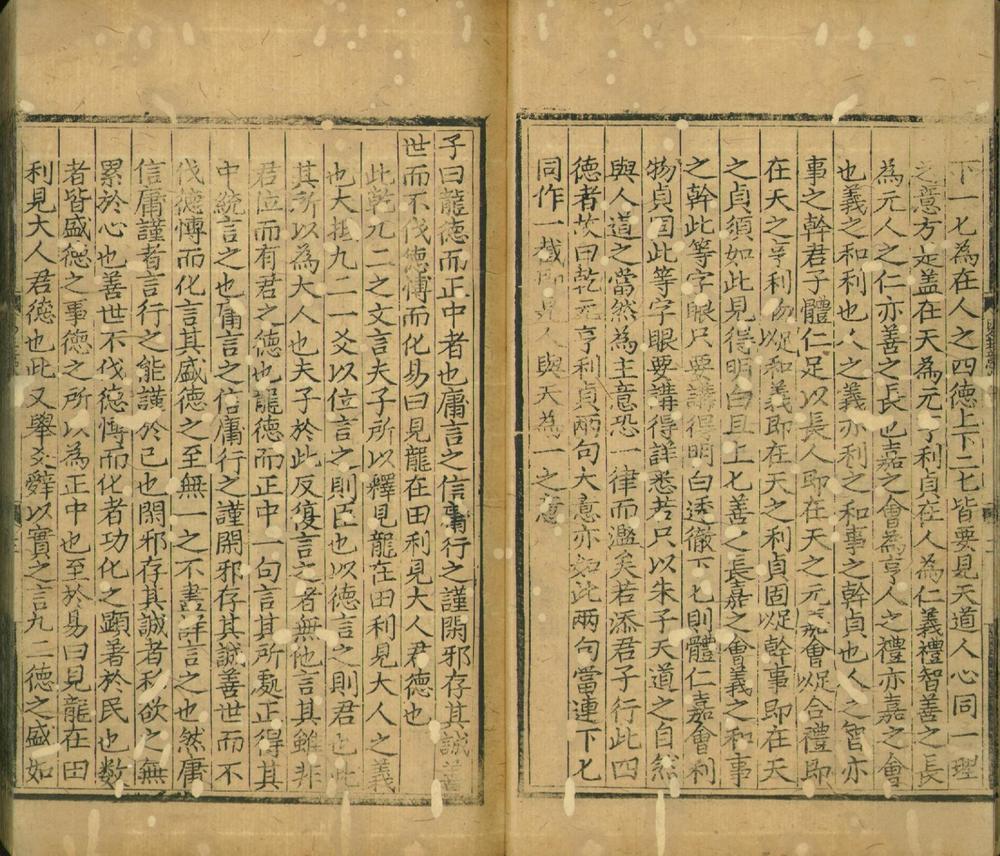 下一七為在人之四德上下二七皆要見天道人心同一理
之意方是盖在天為元亨利貞在人為仁義禮智善之長
為元人之仁亦善之長也嘉之會為亨人之禮亦嘉之會
也義之和利也人之義亦利之和事之幹貞也人之智亦
事之幹君子體仁足以長人即在天之元嘉會足以合禮即
在天之亨利物足以和義即在天之利貞固足以幹事即在天
之貞須如此見得明白且上七善之長嘉之會義之和事
之幹此等字眼只要講得明白透徹下七則體仁嘉會利
物貞固此等字眼要講得詳悉若只以朱子天道之自然
與人道之當然為主意恐一律而濫矣若添君子行此四
德者故曰乾元亨利貞兩句大意亦如此兩句當連下七
同作一截即見人與天為一之意
子曰龍德而正中者也庸言之信庸行之謹閑邪存其誠善
世而不伐德慱而化易曰見龍在田利見大人君德也
此乾九二之文言夫子所以釋見龍在田利見大人之義
也大抵九二一爻以位言之則臣也以德言之則君也此
其所以為大人也夫子於此反復言之者無他言其雖非
君位而有君之德也龍德而正中一句言其所處正得其
中統言之也庸言之信庸行之謹閑邪存其誠善世而不
伐德慱而化言其盛德之至無一之不盡詳言之也然庸
信庸謹者言行之能謹於己也閑邪存其誠者私欲之無
累於心也善世不伐德慱而化者功化之顯著於民也数
者皆盛德之事德之所以為正中也至於易曰見龍在田
利見大人君德也此又舉爻辭以實之言九二德之盛如